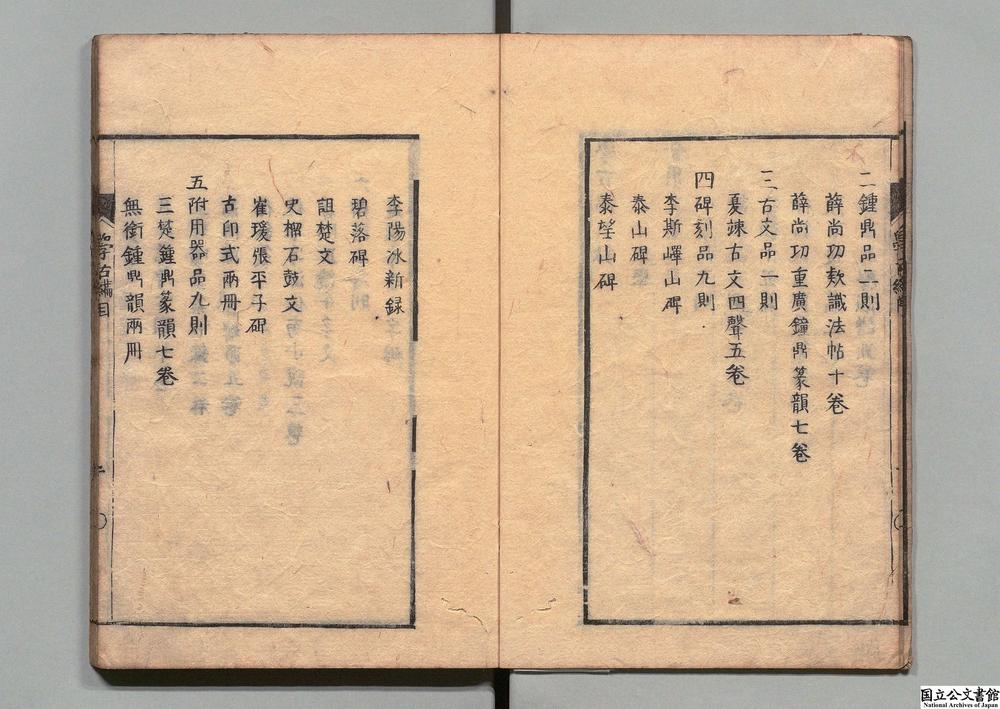 二鍾鼎品二則
薛尚功款識法帖十卷
薛尚功重廣鐘鼎篆韻七卷
三古文品一則
夏竦古文四聲五卷
四碑刻品九則
李斯嶧山碑
泰山碑
秦望山碑
李陽冰新録
碧落碑
詛楚文
史榴石鼓文
崔瑗張平子碑
古印式兩冊
五附用器品九則
三䇿鍾鼎篆韻七卷
無銜鍾鼎韻兩冊
學古編目
二
国立公文書館
National Archives of Japan